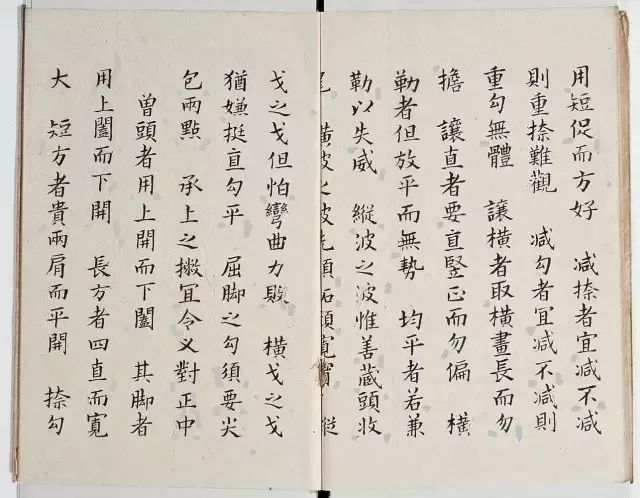 用短促而方好　減捺者宜減不減
則重捺難觀　減勾者宜減不減則
重勾無體　讓橫者取橫畫長而勿
擔　讓直者要直竪正而勿偏　橫
勒者但放平而無勢　均平者若兼
勒以失威　縱波之波惟善藏頭收
尾　橫波之波先　寬　縱
戈之戈但怕彎曲力敗　橫戈之戈
猶嫌挺直勾平　屈脚之勾須要尖
包兩點　承上之撇冝令乂對正中
曾頭者用上開而下闔　其脚者
用上闔而下開　長方者四直而寬
大　短方者貴兩肩而平開　捺勾